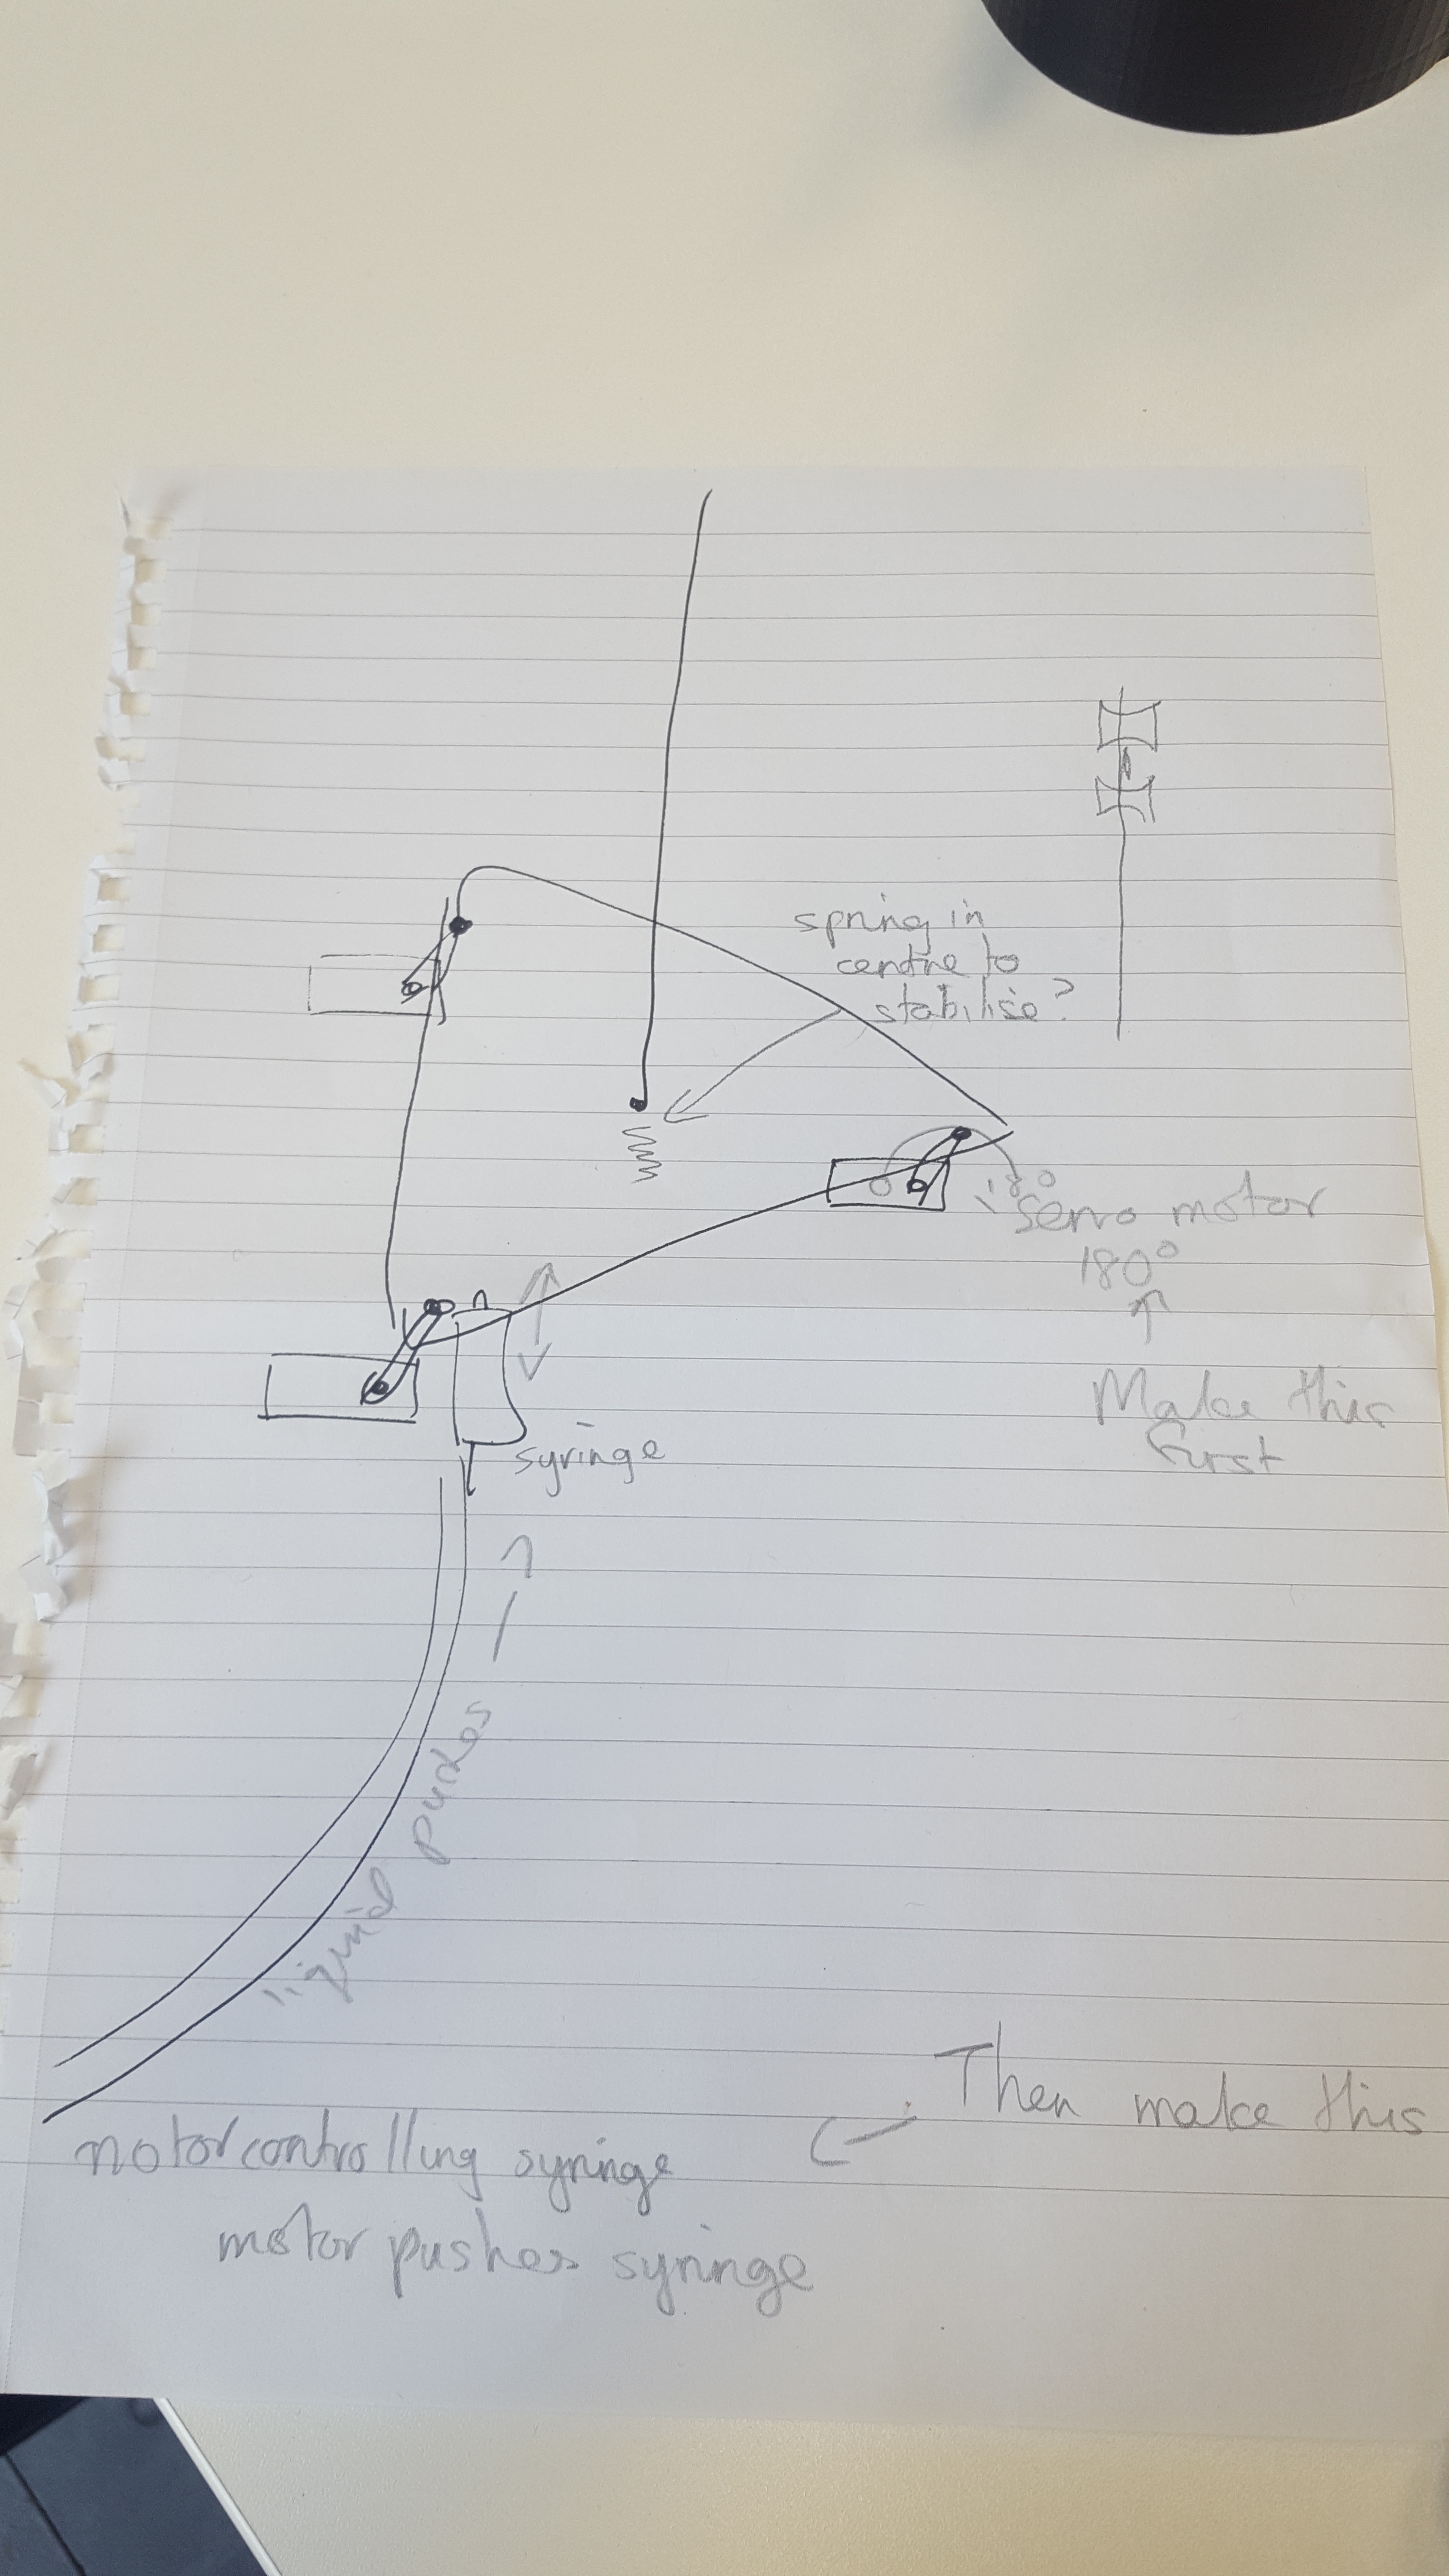 spring in
centre to
stabilise?
180
servo motor
180°
Make this
first
syringe
liquid pushes
Then make this
motor controlling syringe
motor pushes syringe